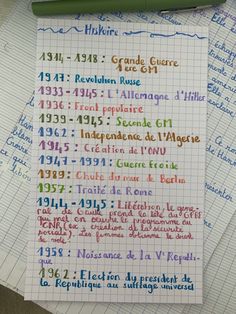 Histoire
1914-1918 : Grande Guerre
1ère GM
1917 : Revolution Russe
1933-1945 : L'Allemagne d'Hitler
1936 : Front populaire
1939-1945 : Seconde GM
1962 : Independence de l'Algerie
1945 : Création de l'ONU
1947-1991 : Guerre Froide
1989 : Chute du mur de Berlin
1957 : Traité de Rome
1944-1945 : Libération, le géné-
ral de Gaulle prend la tête du GPRF
qui met en oeuvre le programme du
CNR (ex : création de la sécurité
sociale). Les femmes obtienne le droit
de vote.
1958 : Naissance de la Vᵉ Républi-
que
1962 : Election du président de
la République au suffrage universel